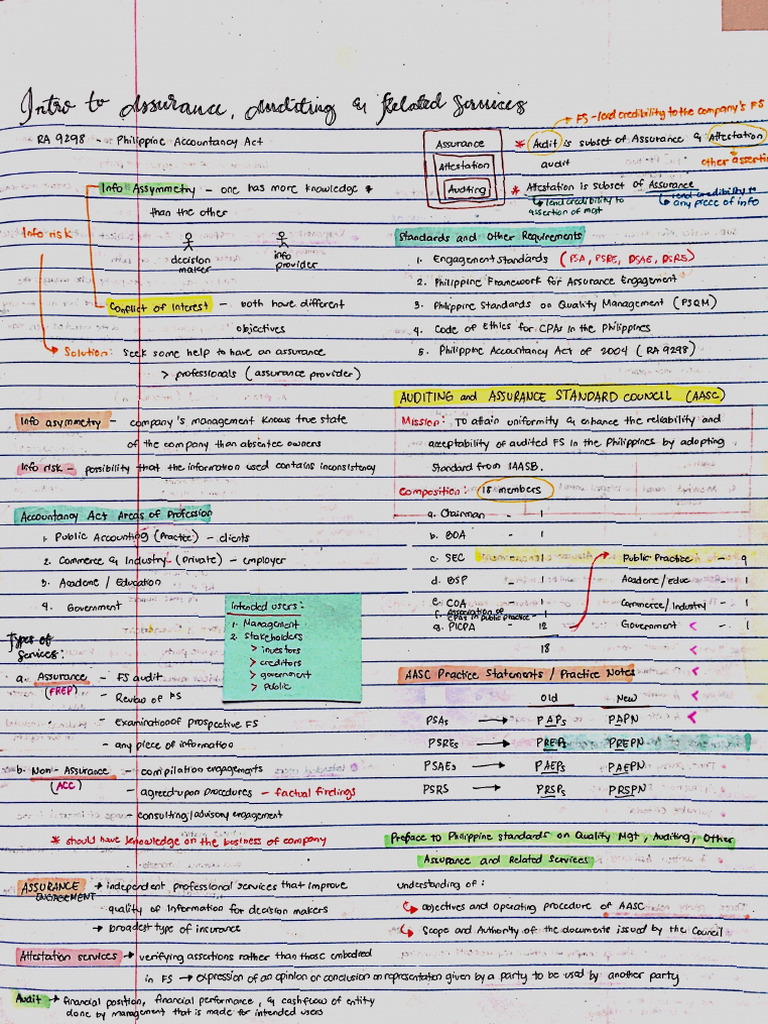 Intro to Assurance, Auditing & Related Services
RA 9298 - Philippine Accountancy Act
Info Assymmetry - one has more knowledge
than the other
Info risk
decision maker
info provider
Conflict of Interest - both have different
objectives
Solution: seek some help to have an assurance
> professionals (assurance provider)
Info asymmetry - company's management knows true state
of the company than absentee owners
Info risk - possibility that the information used contains inconsistency
Accountancy Act Areas of Profession
1. Public Accounting (Practice) - clients
2. Commerce & Industry (Private) - employer
3. Academe / Education
4. Government
Intended users:
1. Management
2. Stakeholders
> investors
> creditors
> government
> Public
Types of
Services:
a. Assurance - FS audit
(FREP) - Review of FS
- examination of prospective FS
- any piece of information
b. Non-Assurance - compilation engagements
(ACC) - agreed-upon procedures - factual findings
- consulting/advisory engagement
* should have knowledge on the business of company
ASSURANCE → independent professional services that improve
ENGAGEMENT
quality of information for decision makers
→ broadest type of insurance
Attestation services → verifying assertions rather than those embodied
in FS → expression of an opinion or conclusion on representation given by a party to be used by another party
Audit → financial position, financial performance, & cashflows of entity
done by management that is made for intended users
→ FS - lend credibility to the company's FS
Assurance
Attestation
Auditing
* Audit is subset of Assurance & Attestation
audit
other
* Attestation is subset of Assurance
↳ lend credibility to
assertion of mgt
↳ lend credibility to
any piece of info
Standards and Other Requirements
1. Engagement Standards (PSA, PSRE, PSAE, PSRS)
2. Philippine Framework for Assurance Engagement
3. Philippine Standards on Quality Management (PSQM)
4. Code of Ethics for CPAs in the Philippines
5. Philippine Accountancy Act of 2004 (RA 9298)
AUDITING and ASSURANCE STANDARD COUNCIL (AASC)
Mission: To attain uniformity & enhance the reliability and
acceptability of audited FS in the Philippines by adopting
Standard from IAASB.
Composition: 18 members
a. Chairman - 1
b. BOA - 1
c. SEC - 1
d. BSP - 1
e. COA - 1
f. Association of CPAs in public practice - 1
g. PICPA - 12
18
Public Practice - 9
Academe/educ - 1
Commerce/Industry - 1
Government - 1
AASC Practice Statements / Practice Notes
Old New
PSAs → PAPs PAPN
PSREs → PREPs PREPN
PSAEs → PAEPs PAEPN
PSRS → PRSPs PRSPN
Preface to Philippine standards on Quality Mgt, Auditing, Other
Assurance and Related Services
understanding of:
↳ objectives and operating procedure of AASC
↳ Scope and Authority of the documents issued by the Council